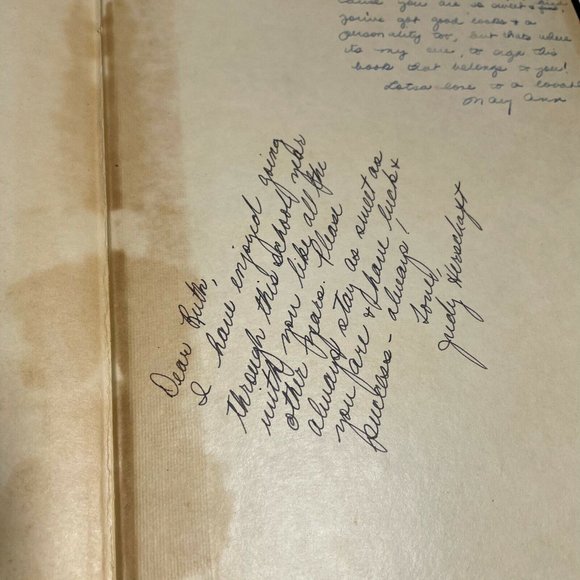 'Cause you are so sweet &
you've got good looks & a
personality too, but thats where
its my cue, to sign this
book that belongs to you!
Lotsa love to a
Mary Ann
Dear Ruth,
I have enjoyed going
through this school year
with you like all the
other years. Please
always stay as sweet as
you are & have luck &
success - always!
Love,
Judy